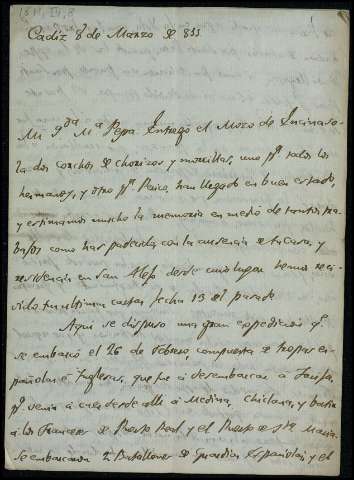 Cadiz 8 de Marzo de 811
Mi q.da M.a Pepa Entregó el Mozo de Encinaso-
la dos conchos de chorizos y morcillas, uno p.a todos los
hermanos, y otro p.a Perico, han llegado en buen estado,
y estimamos mucho la memoria en medio de tantos tra-
bajos como has padecido con la ausencia de tu casa, y
residencia en San Alejo desde cuio lugar hemos reci-
vido tu ultima carta fecha 13 del pasado
Aqui se dispuso una gran expedicion q.e
se embarcó el 26 de Febrero, compuesta de tropas es-
pañolas é Inglesas, que fue á desembarcar á Tarifa,
p.a venir á caer desde alli á Medina, Chiclana, y batir
á los Franceses de Puerto Real y el Puerto de S.ta Maria
Se embarcaron 2 Batallones de Guardias Españolas, y el